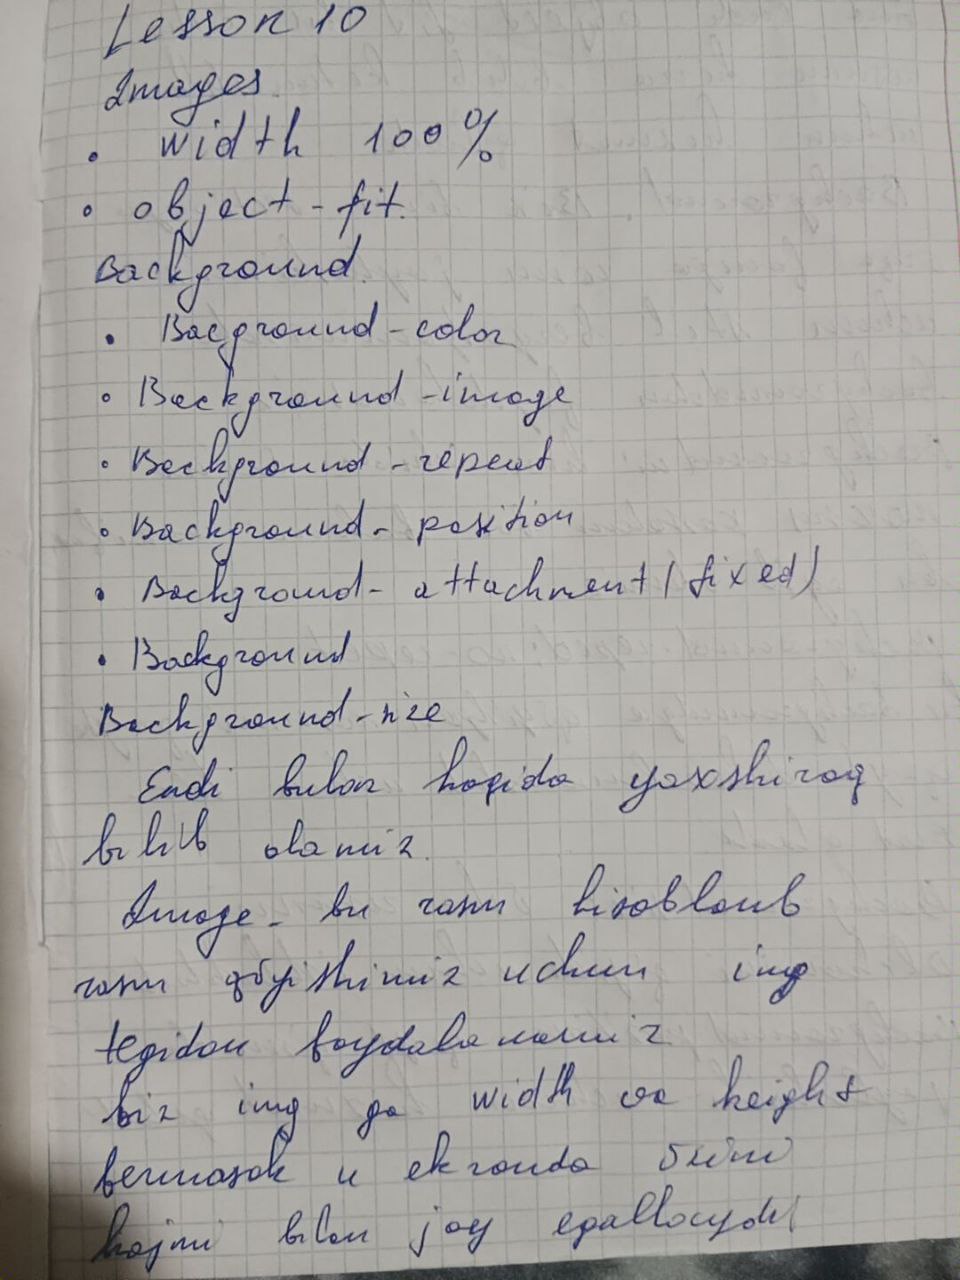 Lesson 10
Images.
• width 100%
• object-fit.
Background.
• Bacground-color
• Background-image
• Background-repeat
• Background-position
• Background-attachment (fixed)
• Background
Background-size
Endi bular haqida yaxshiroq
bilib olamiz.
Image - bu rasm hisoblanib
rasm qõyishimiz uchun img
tegidan foydalanamiz
biz img ga width va height
bermasak u ekranda õzini
hajmi bilan joy egallaydi